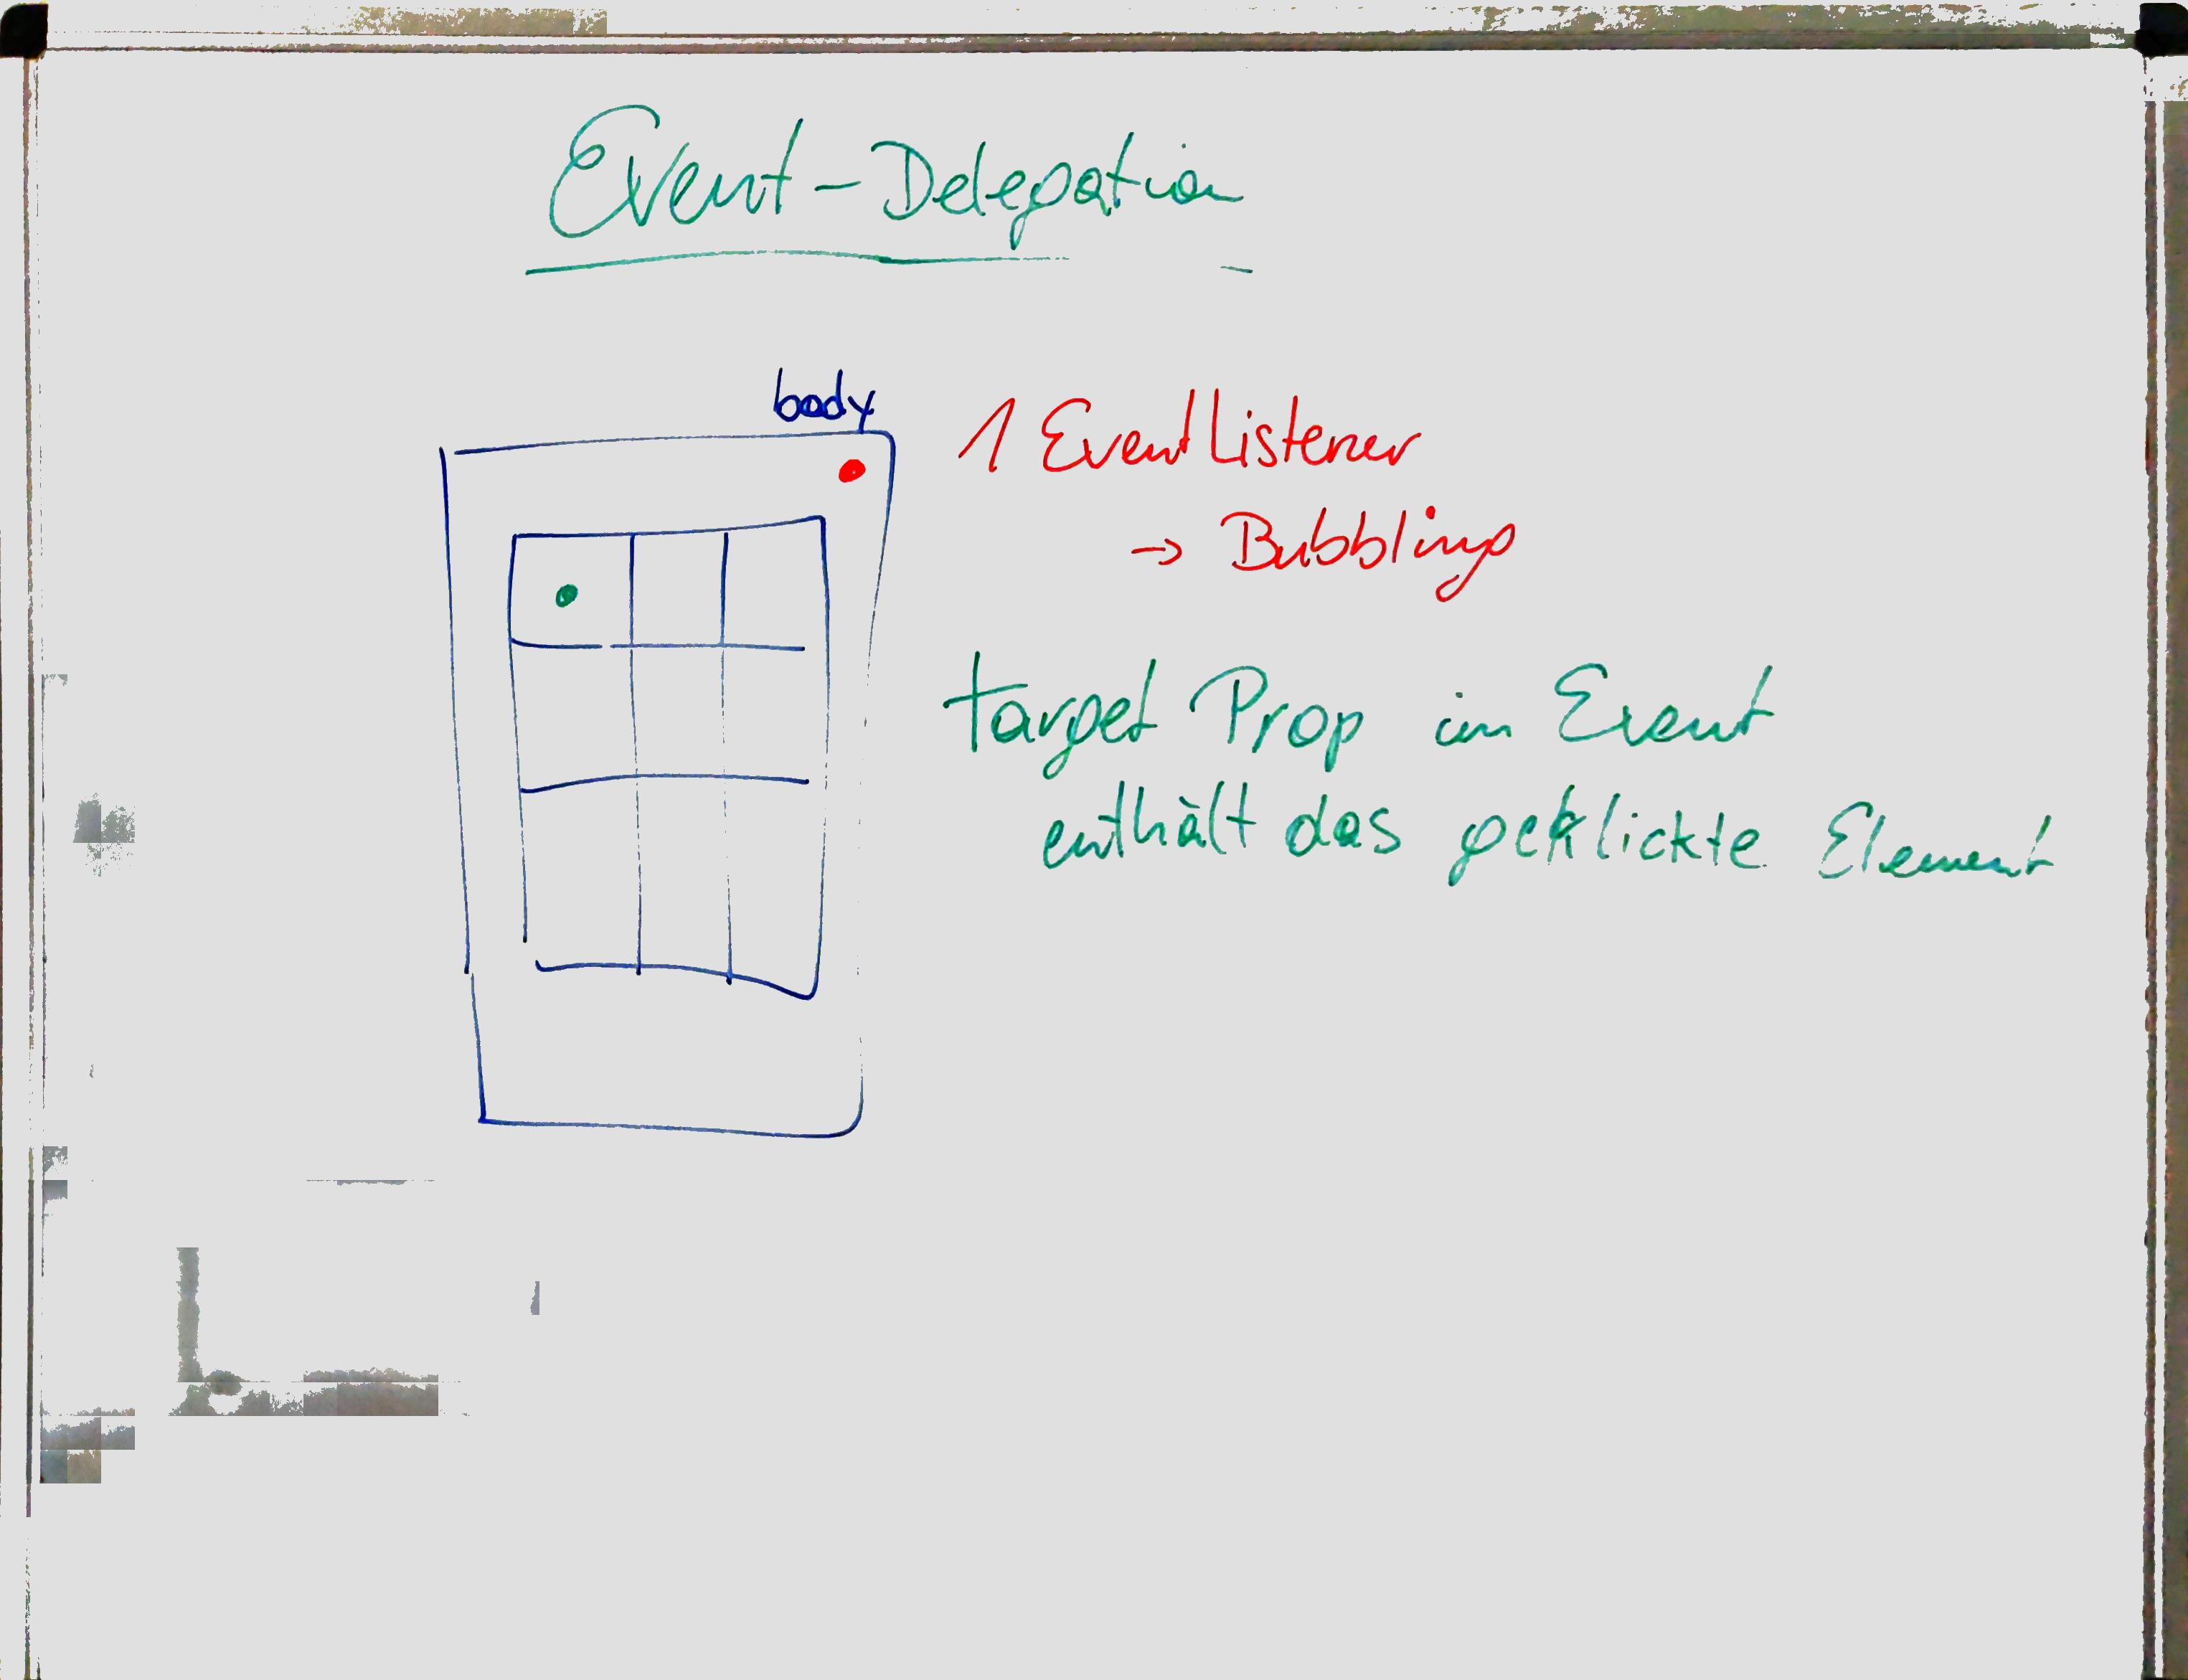 Event-Delegation
body
1 EventListener
→ Bubbling
target Prop im Event
enthält das geklickte Element